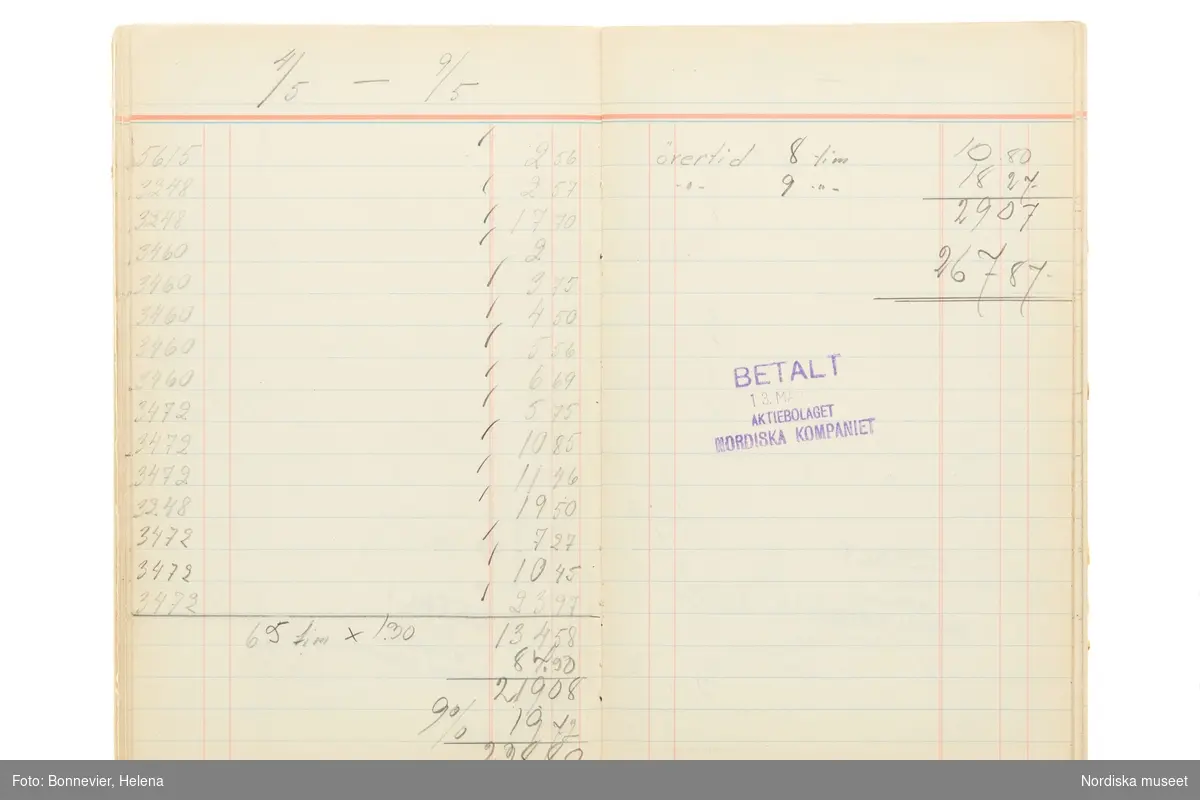 4/5 — 9/5
5615 2 56
3248 2 57
3248 17 70
3460 2
3460 3 75
3460 4 50
3460 5 56
3460 6 69
3472 5 75
3472 10 85
3472 11 46
3248 19 50
3472 7 27
3472 10 45
3472 23 97
65 tim × 1.30 134 58
84.50
219 08
9% 19 72
238 80
övertid 8 tim 10.80
-"- 9 -"- 18 27-
29 07
267 87-
BETALT
13. MA
AKTIEBOLAGET
NORDISKA KOMPANIET
Foto: Bonnevier, Helena
Nordiska museet